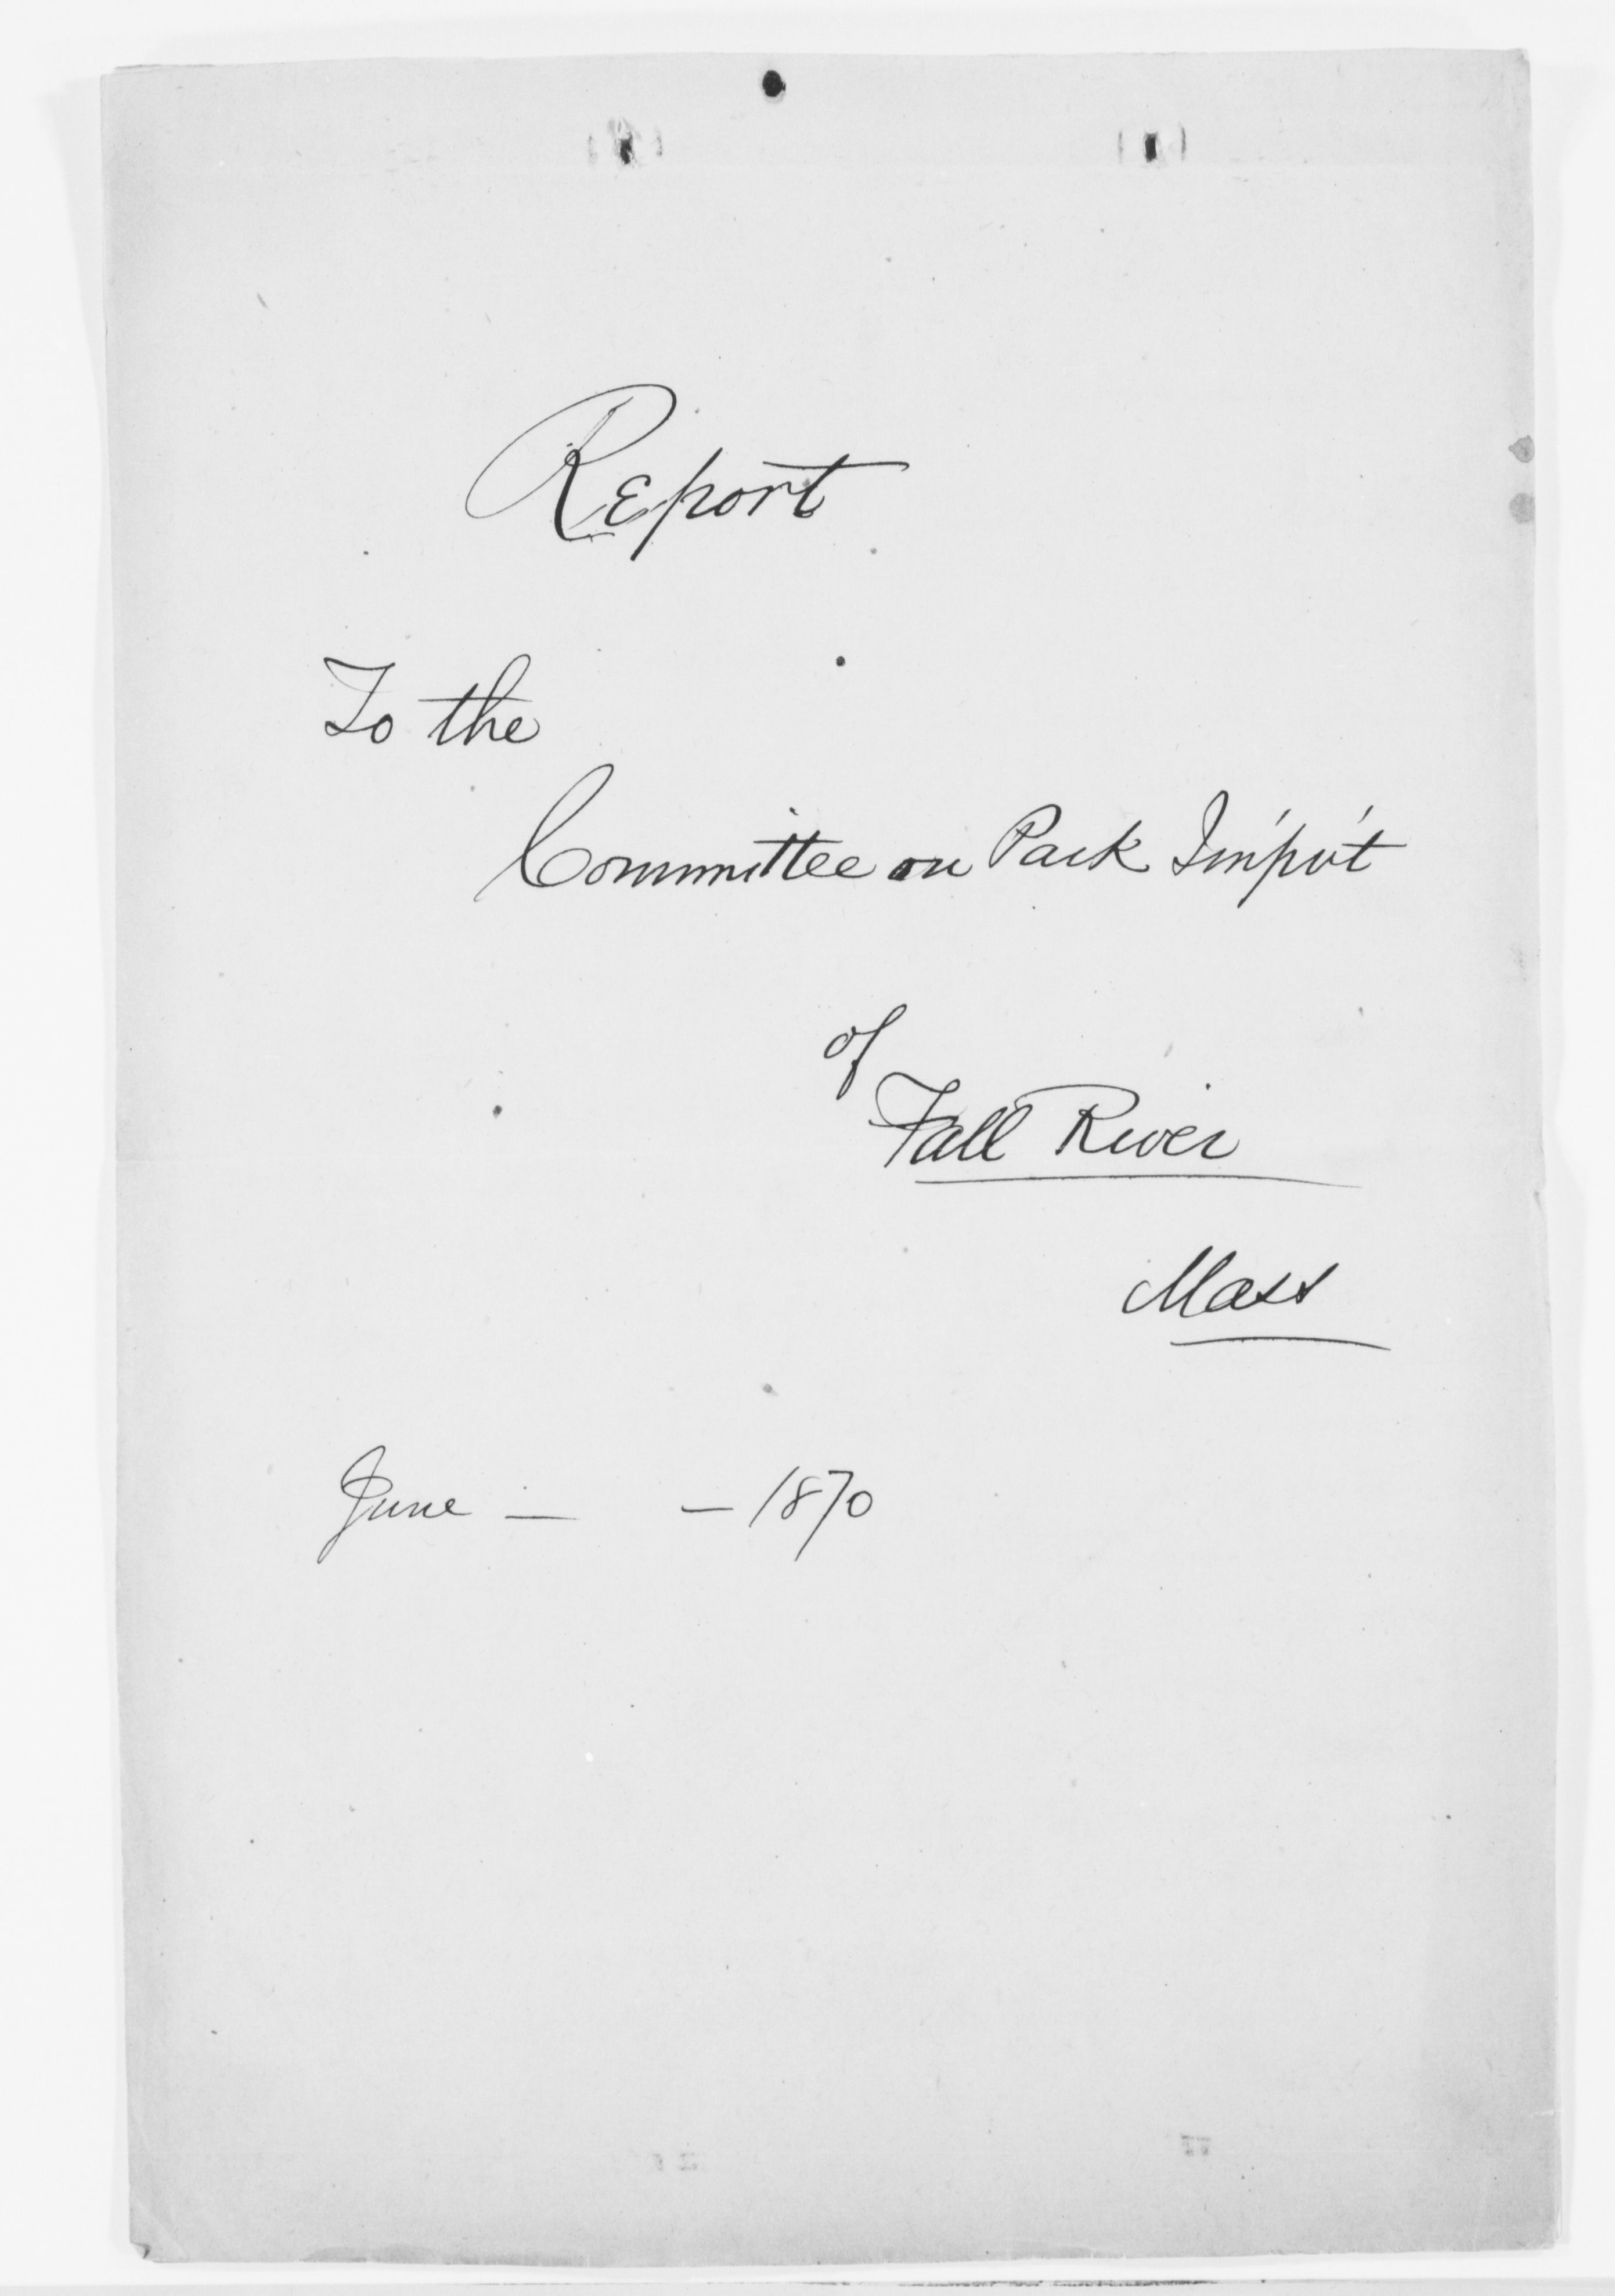 Report
To the
Committee on Park Im'pv't
of
Fall River
Mass
June — — 1870